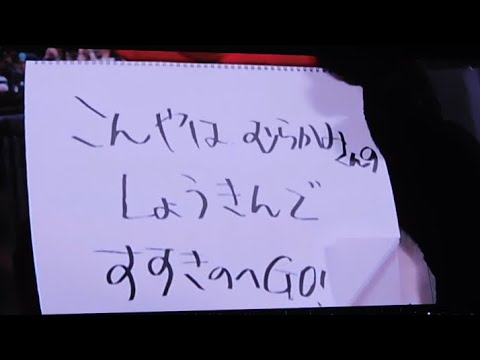 こんやは むらかみさんの
しょうきんで
すすきのへGO!